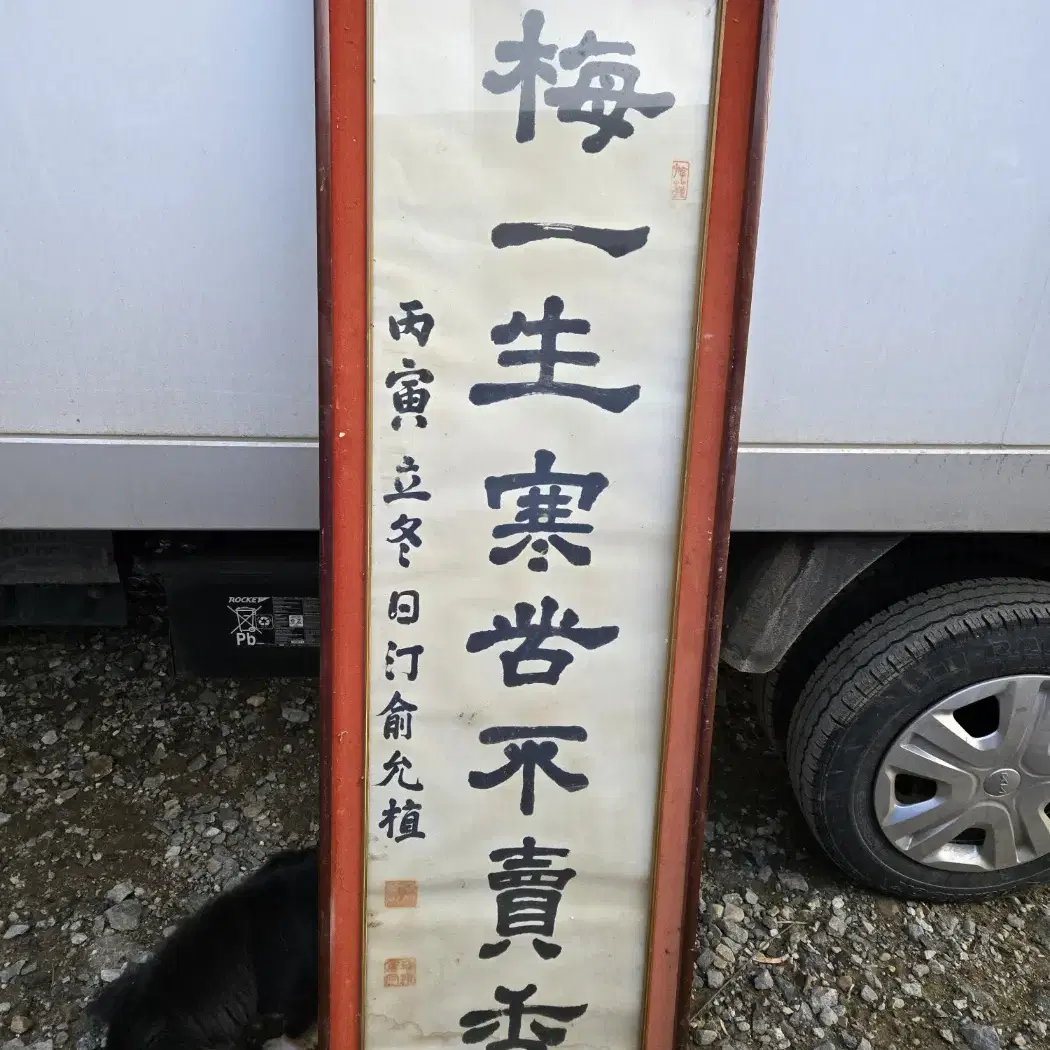 梅一生寒苦不賣香
丙寅立冬日汀俞允植
ROCKET
Pb